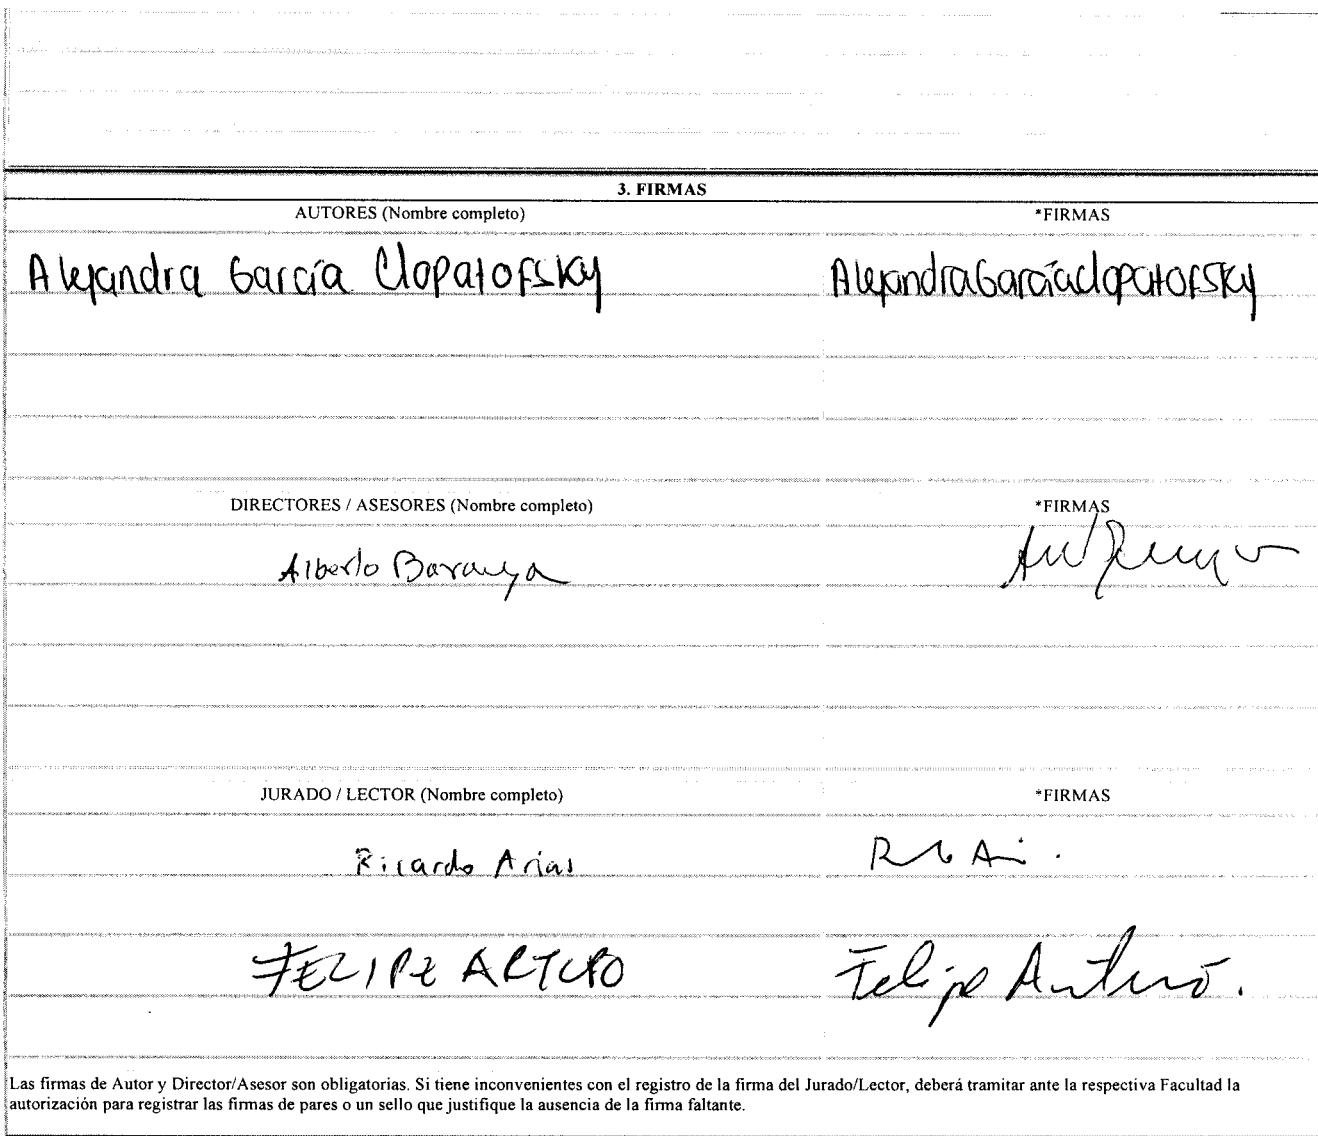 3. FIRMAS
AUTORES (Nombre completo) *FIRMAS
Alejandra García Clopatofsky AlejandraGarcíaclopatofsky
DIRECTORES / ASESORES (Nombre completo) *FIRMAS
Alberto Baraya
JURADO / LECTOR (Nombre completo) *FIRMAS
Ricardo Arias
FELIPE ARTURO Felipe Arturo.
Las firmas de Autor y Director/Asesor son obligatorias. Si tiene inconvenientes con el registro de la firma del Jurado/Lector, deberá tramitar ante la respectiva Facultad la
autorización para registrar las firmas de pares o un sello que justifique la ausencia de la firma faltante.